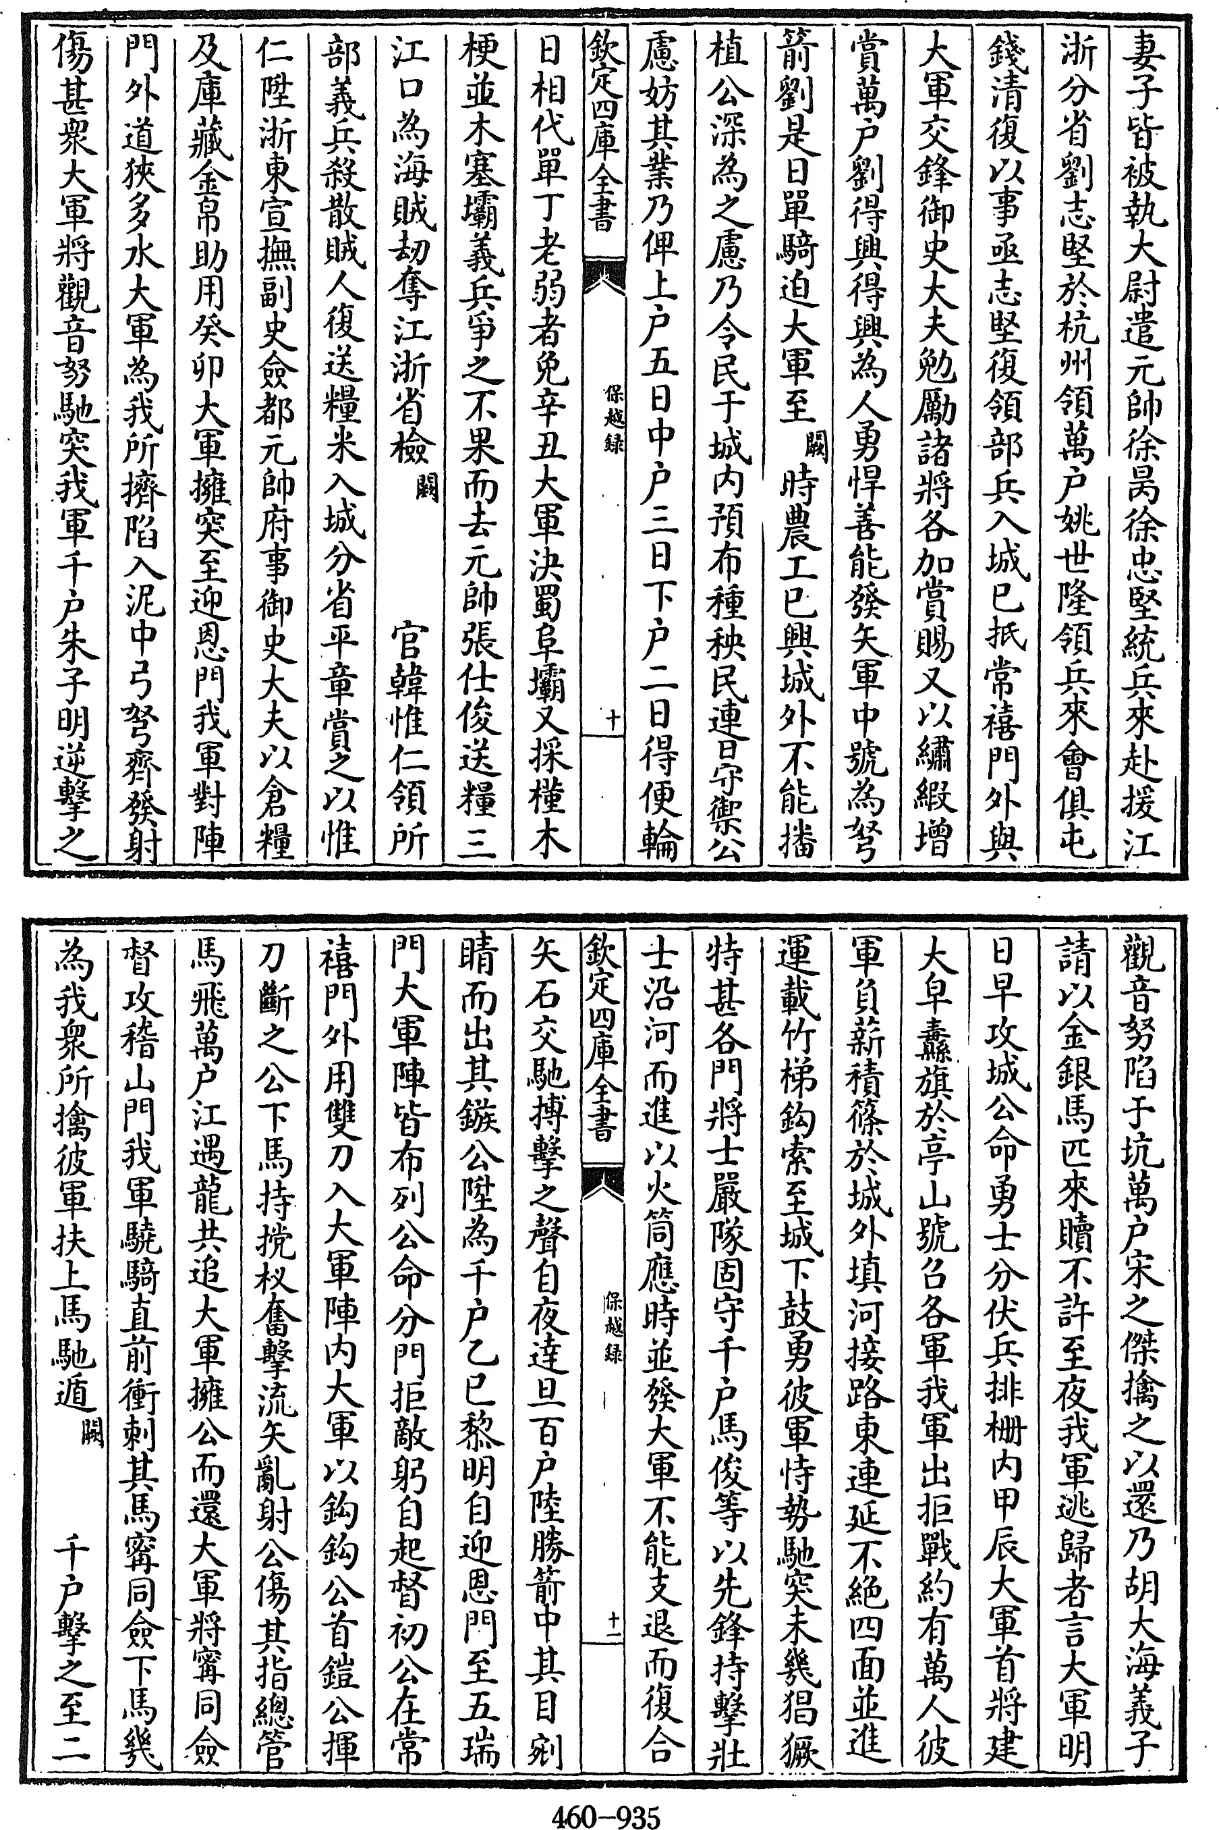 妻子皆被執大尉遣元帥徐昺徐忠堅統兵來赴援江
浙分省劉志堅於杭州領萬户姚世隆領兵來會俱屯
錢清復以事亟志堅復領部兵入城已抵常禧門外與
大軍交鋒御史大夫勉勵諸將各加賞賜又以繡緞增
賞萬户劉得興得興為人勇悍善能發矢軍中號為弩
箭劉是日單騎迫大軍至闕時農工已興城外不能播
植公深為之慮乃令民于城内預布種秧民連日守禦公
慮妨其業乃俾上户五日中户三日下户二日得便輪
欽定四庫全書
保越録
十
日相代單丁老弱者免辛丑大軍決蜀阜壩又採槿木
梗並木塞壩義兵爭之不果而去元帥張仕俊送糧三
江口為海賊刼奪江浙省檢闕官韓惟仁領所
部義兵殺散賊人復送糧米入城分省平章賞之以惟
仁陞浙東宣撫副史僉都元帥府事御史大夫以倉糧
及庫藏金帛助用癸卯大軍擁突至迎恩門我軍對陣
門外道狹多水大軍為我所擠陷入泥中弓弩齊發射
傷甚衆大軍將觀音努馳突我軍千户朱子明逆擊之
觀音努陷于坑萬户宋之傑擒之以還乃胡大海義子
請以金銀馬匹來贖不許至夜我軍逃歸者言大軍明
日早攻城公命勇士分伏兵排柵内甲辰大軍首將建
大皁纛旗於亭山號召各軍我軍出拒戰約有萬人彼
軍負薪積篠於城外填河接路東連延不絶四面並進
運載竹梯鈎索至城下鼓勇彼軍恃勢馳突未幾猖獗
特甚各門將士嚴隊固守千户馬俊等以先鋒持擊壯
士沿河而進以火筒應時並發大軍不能支退而復合
欽定四庫全書
保越録
十一
矢石交馳搏擊之聲自夜達旦百户陸勝箭中其目剜
睛而出其鏃公陞為千户乙巳黎明自迎恩門至五瑞
門大軍陣皆布列公命分門拒敵躬自起督初公在常
禧門外用雙刀入大軍陣内大軍以鈎鈎公首鎧公揮
刀斷之公下馬持㩜杈奮擊流矢亂射公傷其指總管
馬飛萬户江遇龍共追大軍擁公而還大軍將甯同僉
督攻稽山門我軍驍騎直前衝刺其馬甯同僉下馬幾
為我衆所擒彼軍扶上馬馳遁闕千户擊之至二
460-935